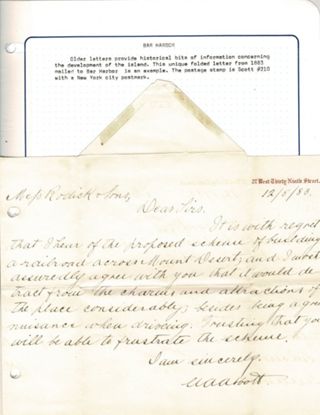 BAR HARBOR
Older letters provide historical bits of information concerning
the development of the island. This unique folded letter from 1883
mailed to Bar Harbor is an example. The postage stamp is Scott #210
with a New York city postmark.
27 West Thirty Ninth Street.
12/5/83.
Mess Rodick & Sons,
Dear Sirs.
It is with regret
that I hear of the proposed scheme of building
a railroad across Mount Desert, and I most
assuredly agree with you that it would de
tract from the charms and attractions of
the place considerably, besides being a gre
nuisance when driving. Trusting that you
will be able to frustrate the scheme.
I am sincerely,